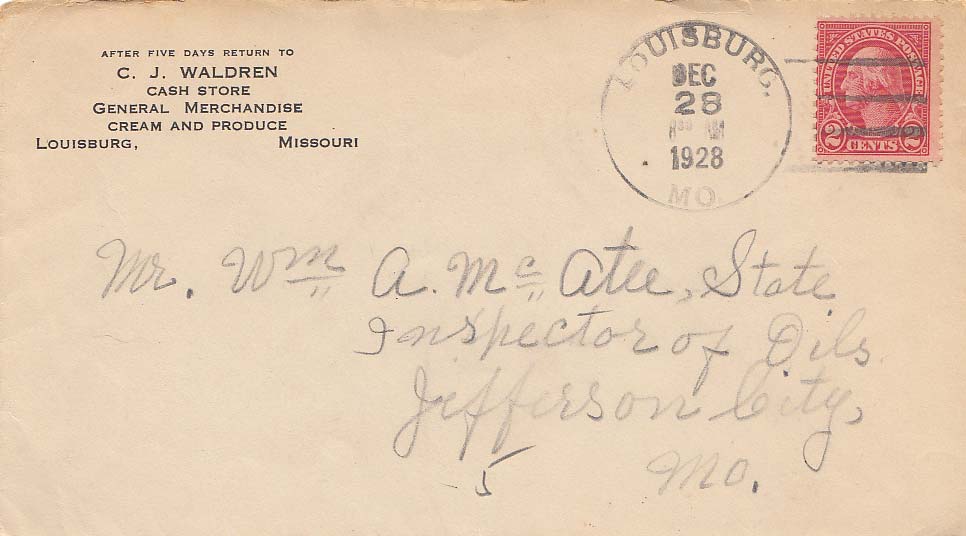 AFTER FIVE DAYS RETURN TO
C. J. WALDREN
CASH STORE
GENERAL MERCHANDISE
CREAM AND PRODUCE
LOUISBURG, MISSOURI
LOUISBURG.
DEC
28
AM
1928
MO
UNITED STATES POSTAGE
2 CENTS 2
Mr. Wm A. Mc Atee, State
Inspector of Oils
Jefferson City,
Mo.
5